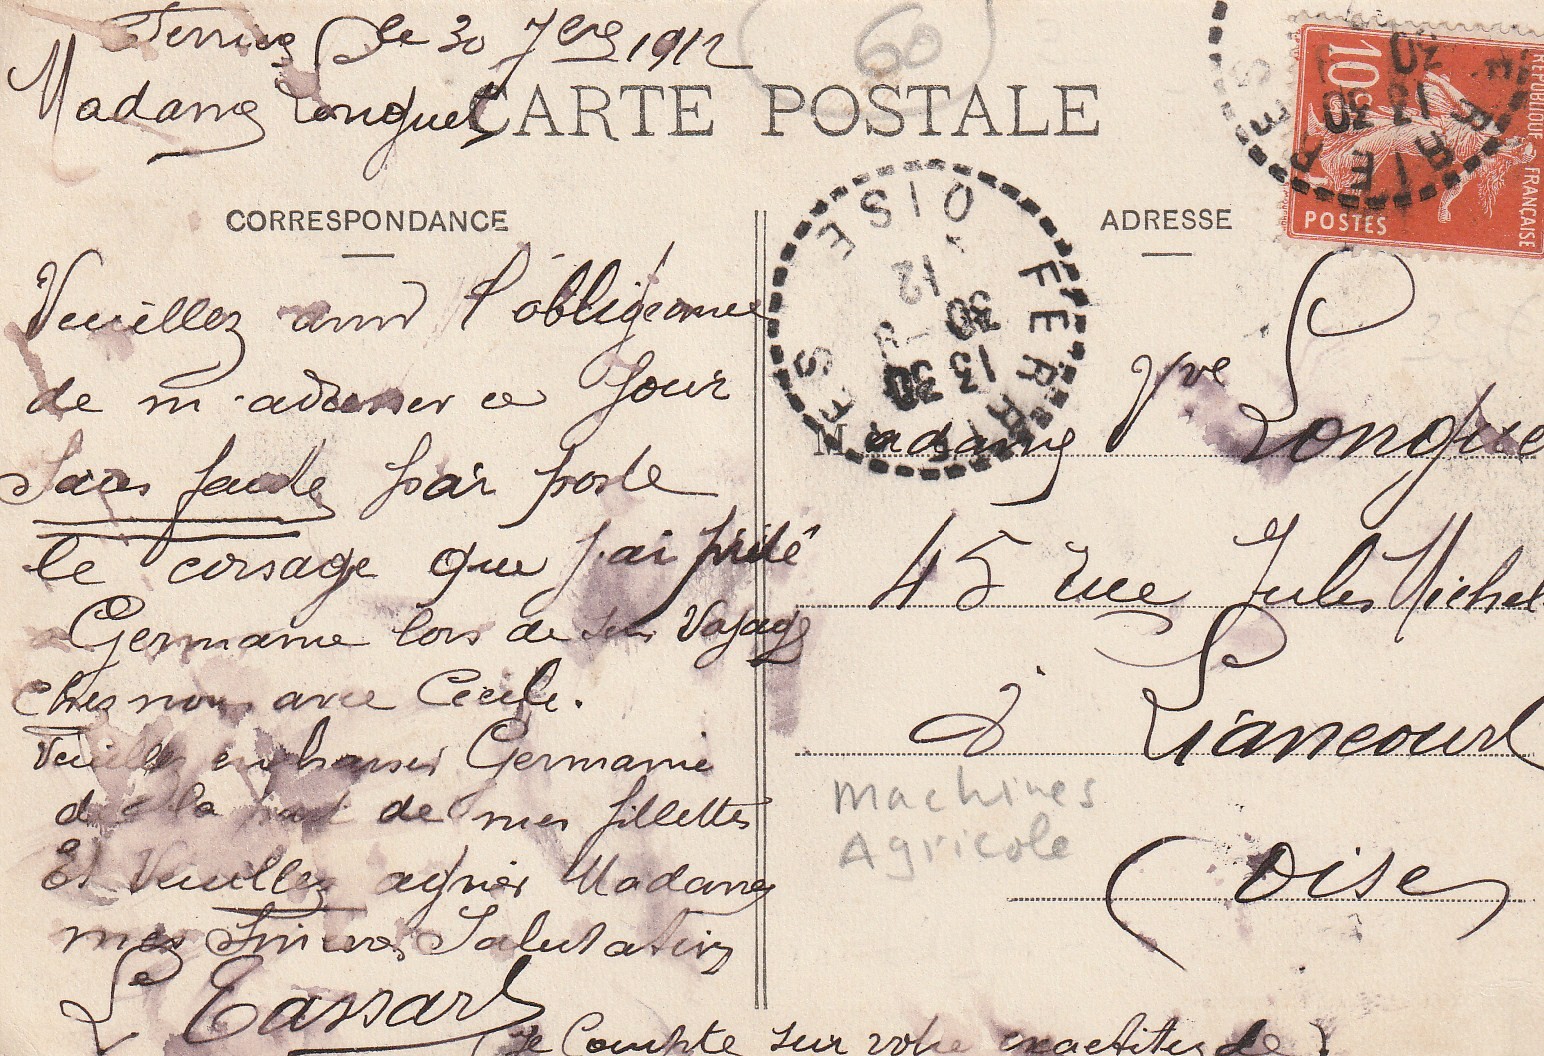 Ferrières le 30 7bre 1912
Madame Longuet
CARTE POSTALE
60
CORRESPONDANCE
ADRESSE
Veuillez avoir l'obligeance
de m'adresser ce jour
sans faute par poste
le corsage que j'ai prêté
Germaine lors de son Voyage
chez nous avec Cécile.
Veuillez embrasser Germaine
de la part de mes fillettes
Et Veuillez agréer Madame
mes Sincères Salutations
L Tassart
je Compte sur votre exactitude
Madame Vve Longue
45 rue Jules Michel
à Liancourt
(Oise)
Machines
Agricole
FERRIERES
OISE
13 30
30 - 9
12
RÉPUBLIQUE FRANÇAISE
10c
POSTES
FERRIERES
13 30
30